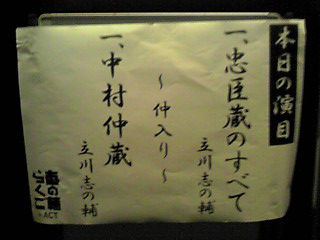 本日の演目
一、忠臣蔵のすべて
立川志の輔
～仲入り～
一、中村仲蔵
立川志の輔
志の輔
らくご
in ACT